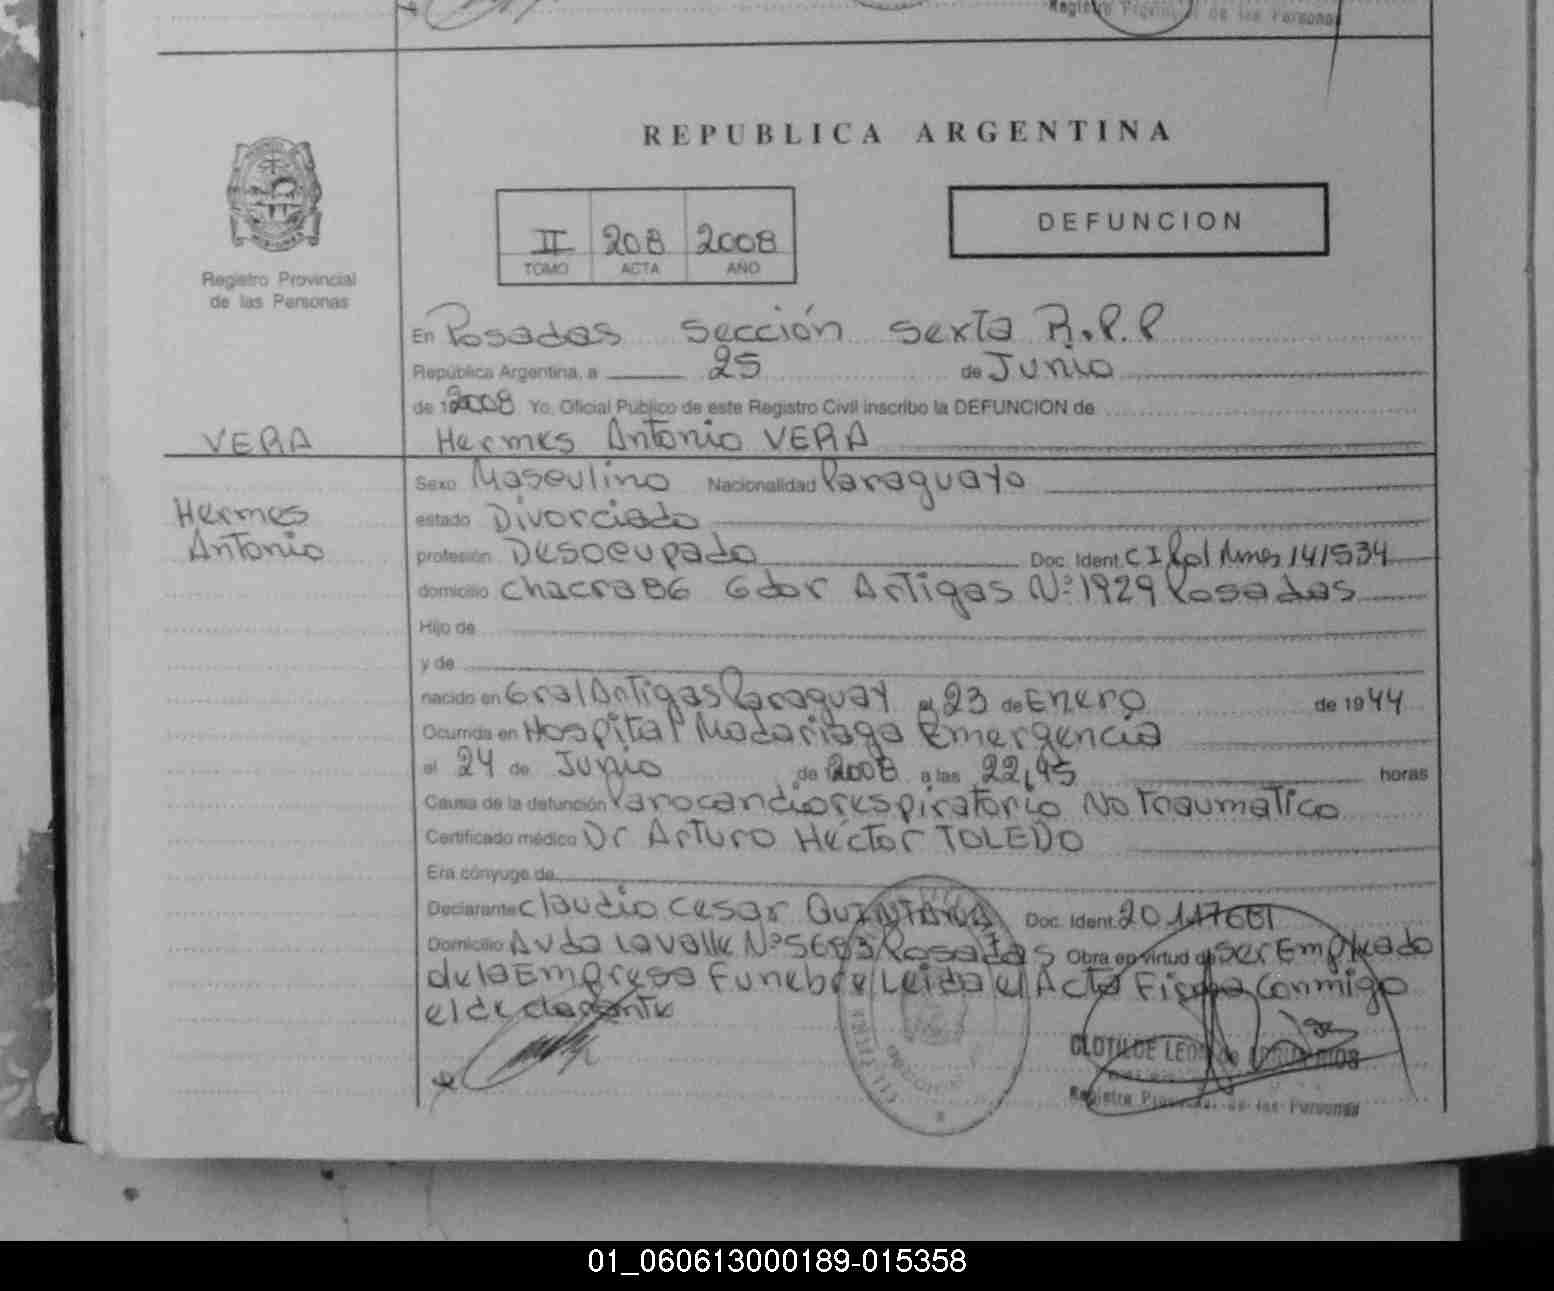 Registro Provincial de las Personas
REPUBLICA ARGENTINA
Registro Provincial
de las Personas
II 208 2008
TOMO ACTA AÑO
DEFUNCION
En Posadas Sección Sexta R.P.P
República Argentina, a 25 de Junio
de 2008 Yo, Oficial Público de este Registro Civil inscribo la DEFUNCION de
VERA
Hermes Antonio VERA
Hermes
Antonio
Sexo Masculino Nacionalidad Paraguayo
estado Divorciado
profesión Desocupado Doc. Ident. CI Pol Mnes 141534
domicilio chacra 86 Gdor Artigas Nº 1929 Posadas
Hijo de
y de
nacido en Gral Artigas Paraguay el 23 de Enero de 1944
Ocurrida en Hospital Madariaga Emergencia
el 24 de Junio de 2008 a las 22,45 horas
Causa de la defunción Parocardiorespiratorio No Traumatico
Certificado médico Dr Arturo Héctor TOLEDO
Era cónyuge de
Declarante Claudio Cesar QUINTANA Doc. Ident.
Domicilio Avda Lavalle Nº 5683 Posadas Obra en virtud de ser Empleado
de la Empresa Funebre Leida el Acta Firma Conmigo
el declarante
CLOTILDE LEON de
Registro Provincial de las Personas
01_060613000189-015358